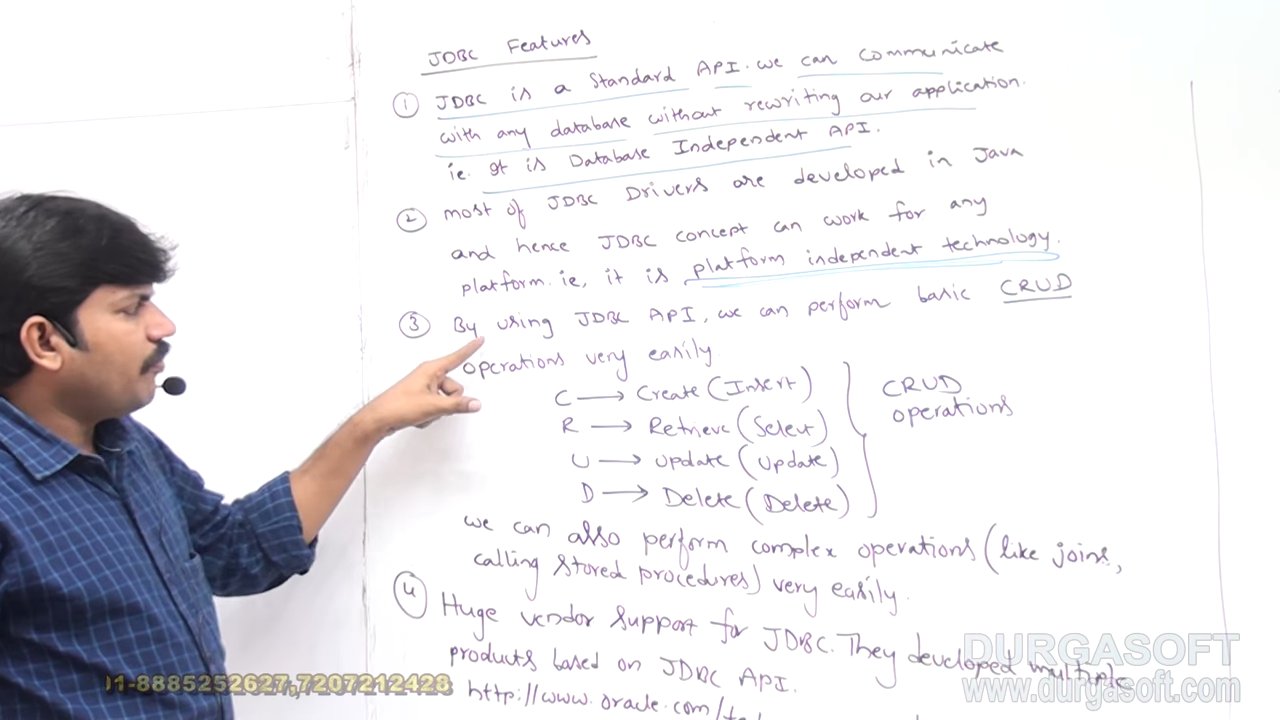 JDBC Features
① JDBC is a Standard API. we can communicate
with any database without rewriting our application.
ie. It is Database Independent API.
② most of JDBC Drivers are developed in Java
and hence JDBC concept can work for any
platform. ie, it is platform independent technology.
③ By using JDBC API, we can perform basic CRUD
operations very easily
C → Create (Insert)
R → Retrieve (Select)
U → update (update)
D → Delete (Delete)
CRUD
operations
we can also perform complex operations (like joins,
calling stored procedures) very easily.
④ Huge vendor support for JDBC. They developed multiple
products based on JDBC API.
http://www.oracle.com/
DURGASOFT
www.durgasoft.com
91-8885252627,7207212428